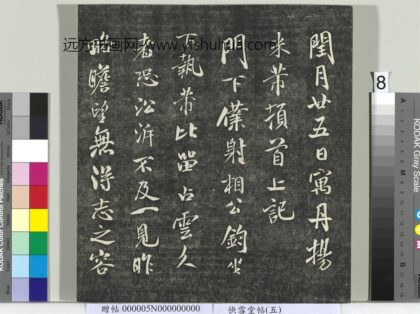 閏月廿五日寓丹揚
米芾頓首上記
門下僕射相公鈞坐
下執芾比留占雲久
者恐沿泝不及一見昨
瞻望無淂志之容
远方书画网 www.yishuhua.com
8
KODAK Gray Scale
贈帖 000005N000000000
快雪堂帖(五)